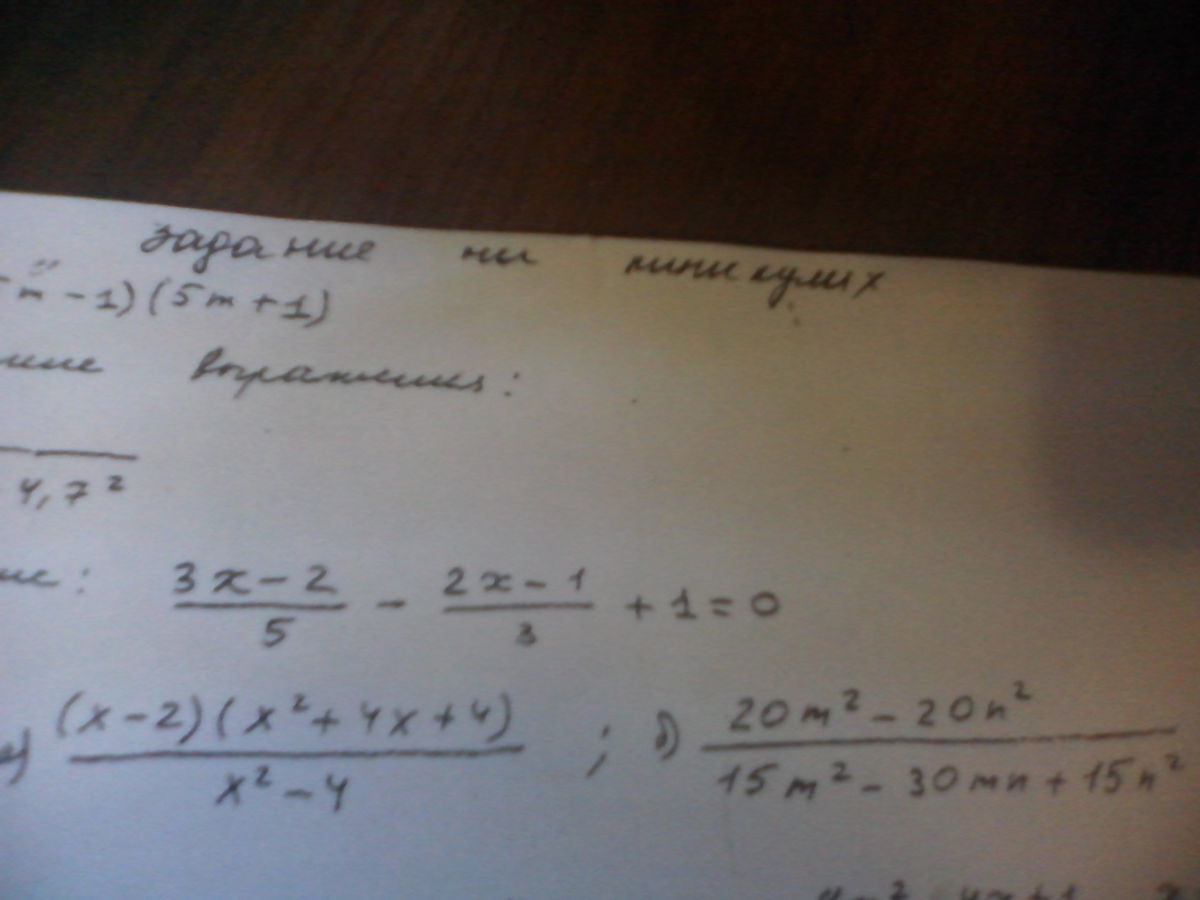 задание на каникулах
m - 1) (5m + 1)
выражения:
4,7²
ие: \frac{3x - 2}{5} - \frac{2x - 1}{3} + 1 = 0
а) \frac{(x - 2)(x² + 4x + 4)}{x² - 4} ; б) \frac{20m² - 20n²}{15m² - 30mn + 15n²}